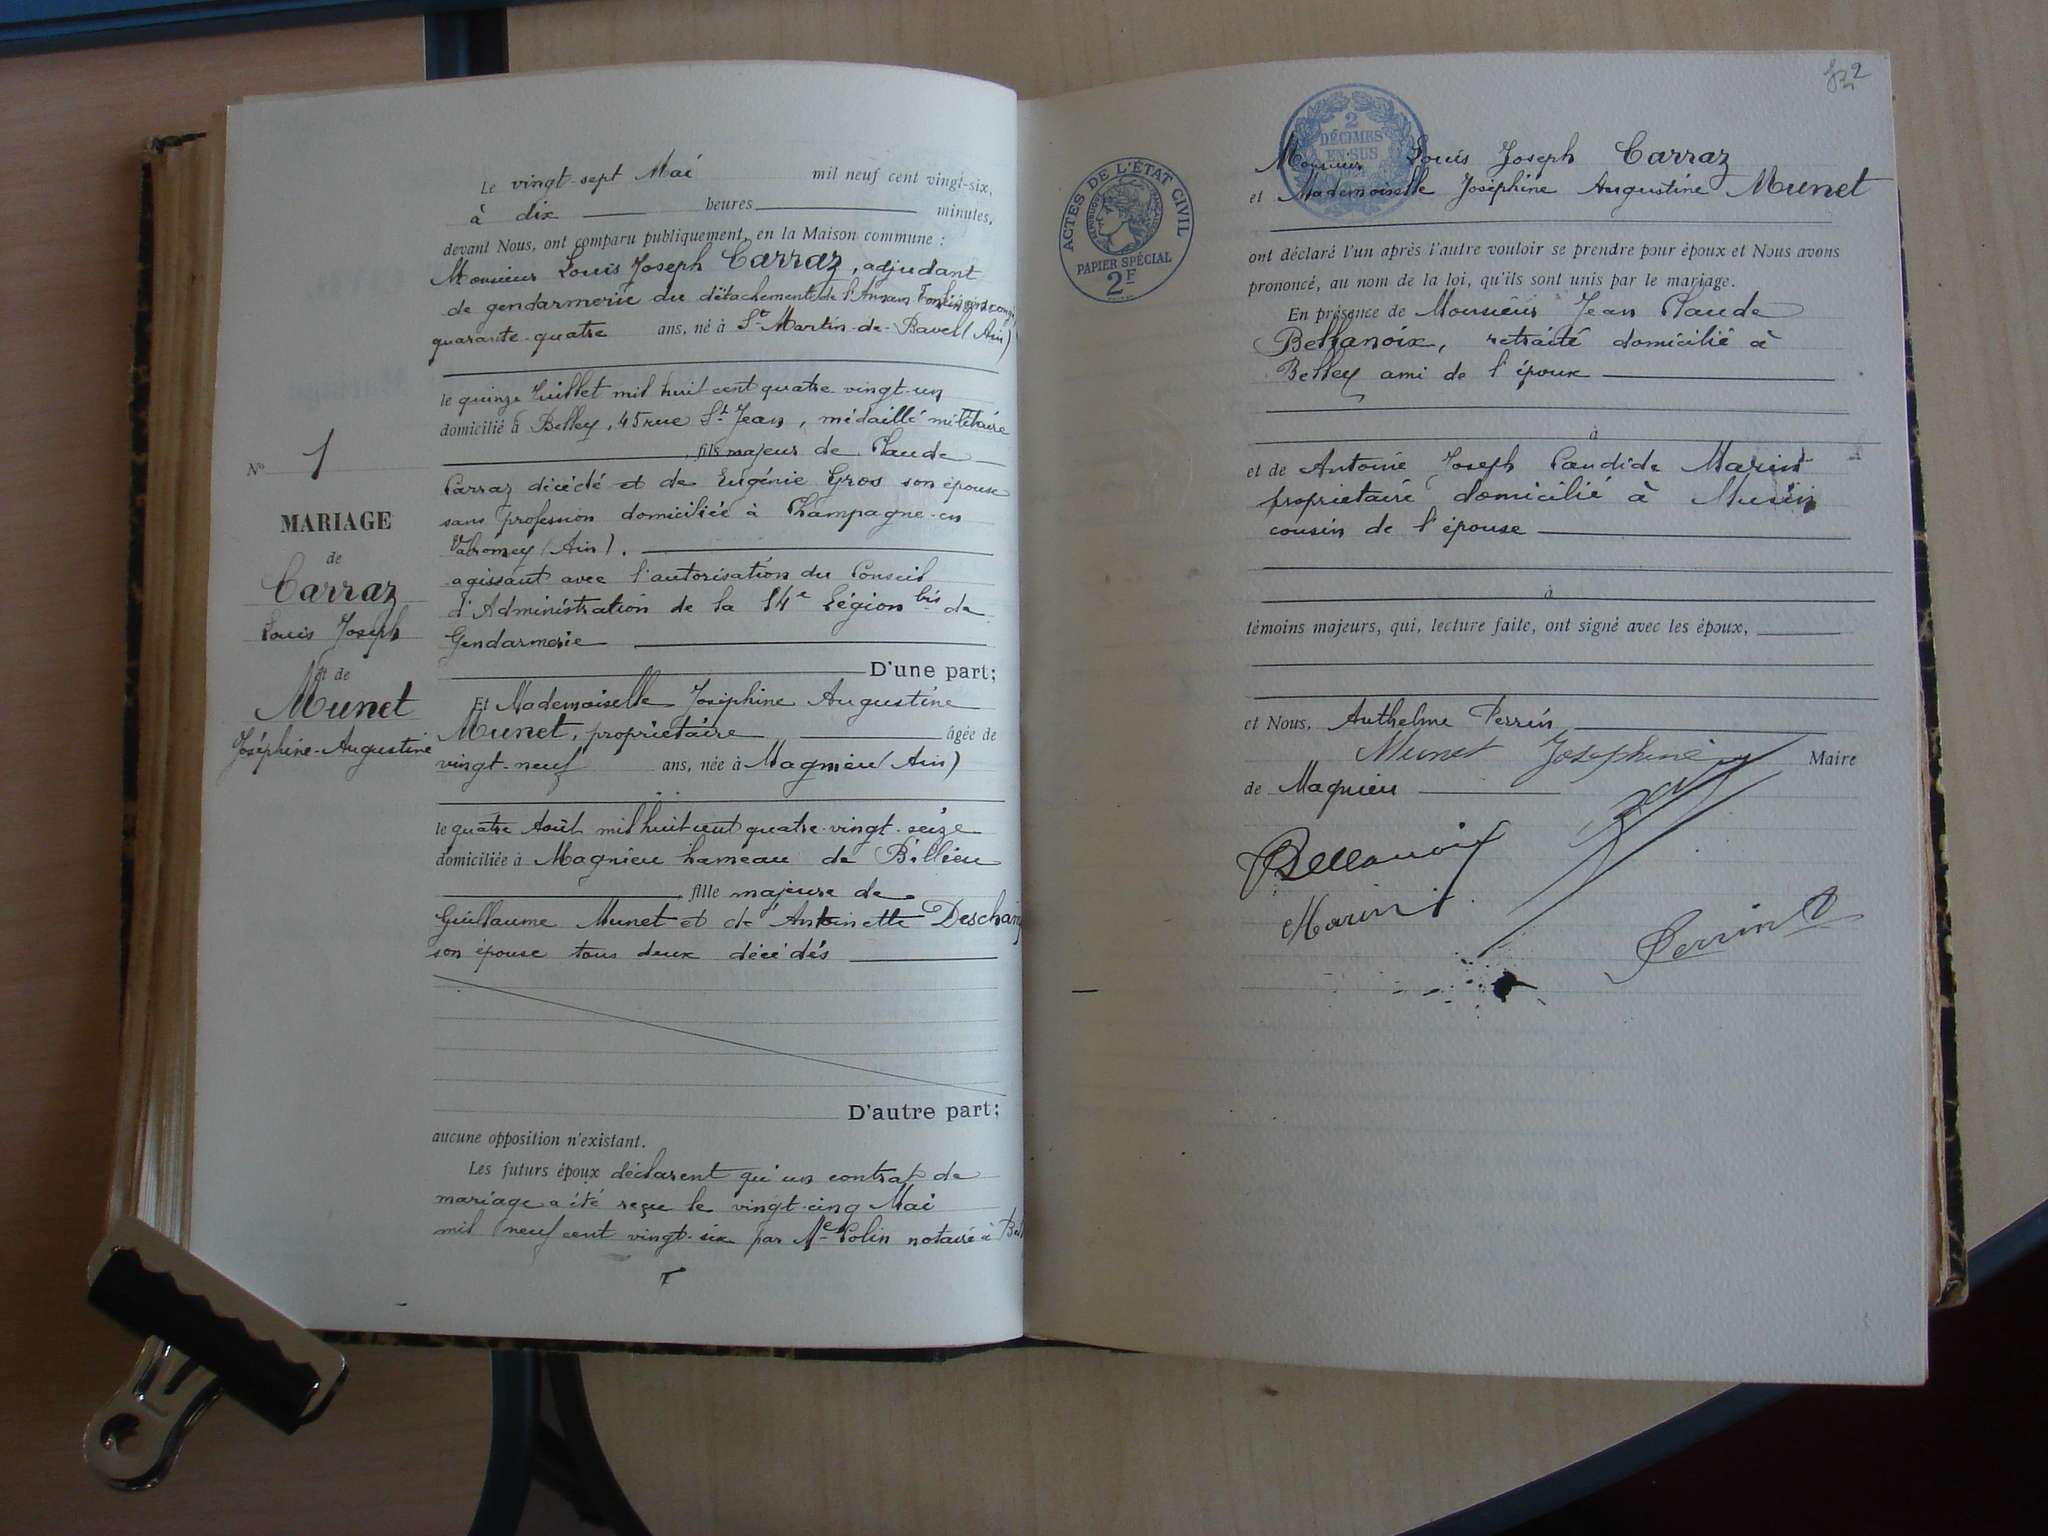 Le vingt-sept Mai mil neuf cent vingt-six,
à dix heures minutes,
devant Nous, ont comparu publiquement, en la Maison commune :
Monsieur Louis Joseph Carraz, adjudant
de gendarmerie du détachement de l'Annam Tonkin en congé
quarante-quatre ans, né à St Martin-de-Bavel (Ain)
le quinze Juillet mil huit cent quatre-vingt-un
domicilié à Belley, 45 rue St Jean, médaillé militaire
fils majeur de Claude
Carraz décédé et de Eugénie Gros son épouse
sans profession domiciliée à Champagne-en
Valromey (Ain).
agissant avec l'autorisation du Conseil
d'Administration de la 14e Légion bis de
Gendarmerie
D'une part;
Et Mademoiselle Joséphine Augustine
Munet, propriétaire âgée de
vingt-neuf ans, née à Magnieu (Ain)
le quatre Août mil huit cent quatre-vingt-seize
domiciliée à Magnieu hameau de Billieu
fille majeure de
Guillaume Munet et de Antoinette Deschamp
son épouse tous deux décédés
D'autre part;
aucune opposition n'existant.
Les futurs époux déclarent qu'un contrat de
mariage a été reçu le vingt-cinq Mai
mil neuf cent vingt-six par Me Colin notaire à
No 1
MARIAGE
de
Carraz
Louis Joseph
et de
Munet
Joséphine-Augustine
ACTES DE L'ÉTAT CIVIL
PAPIER SPÉCIAL
2F
2
DÉCIMES
EN SUS
Monsieur Louis Joseph Carraz
et Mademoiselle Joséphine Augustine Munet
ont déclaré l'un après l'autre vouloir se prendre pour époux et Nous avons
prononcé, au nom de la loi, qu'ils sont unis par le mariage.
En présence de Monsieur Jean Claude
Bellanoix, retraité domicilié à
Belley ami de l'époux
à
et de Antoine Joseph Candide Marin
propriétaire domicilié à Musin
cousin de l'épouse
à
témoins majeurs, qui, lecture faite, ont signé avec les époux,
et Nous, Anthelme Perrin
Munet Josephine
Maire
de Magnieu
Bellanoix
Marin
Perrin